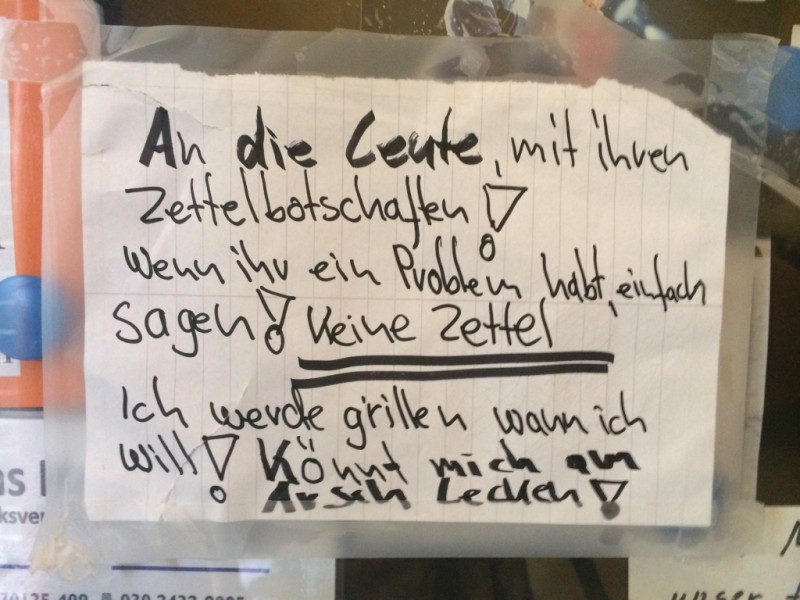 An die Leute, mit ihren
Zettelbotschaften!
Wenn ihr ein Problem habt, einfach
sagen! Keine Zettel
Ich werde grillen wann ich
will! Könnt mich am
Arsch Lecken!
ksver
unser